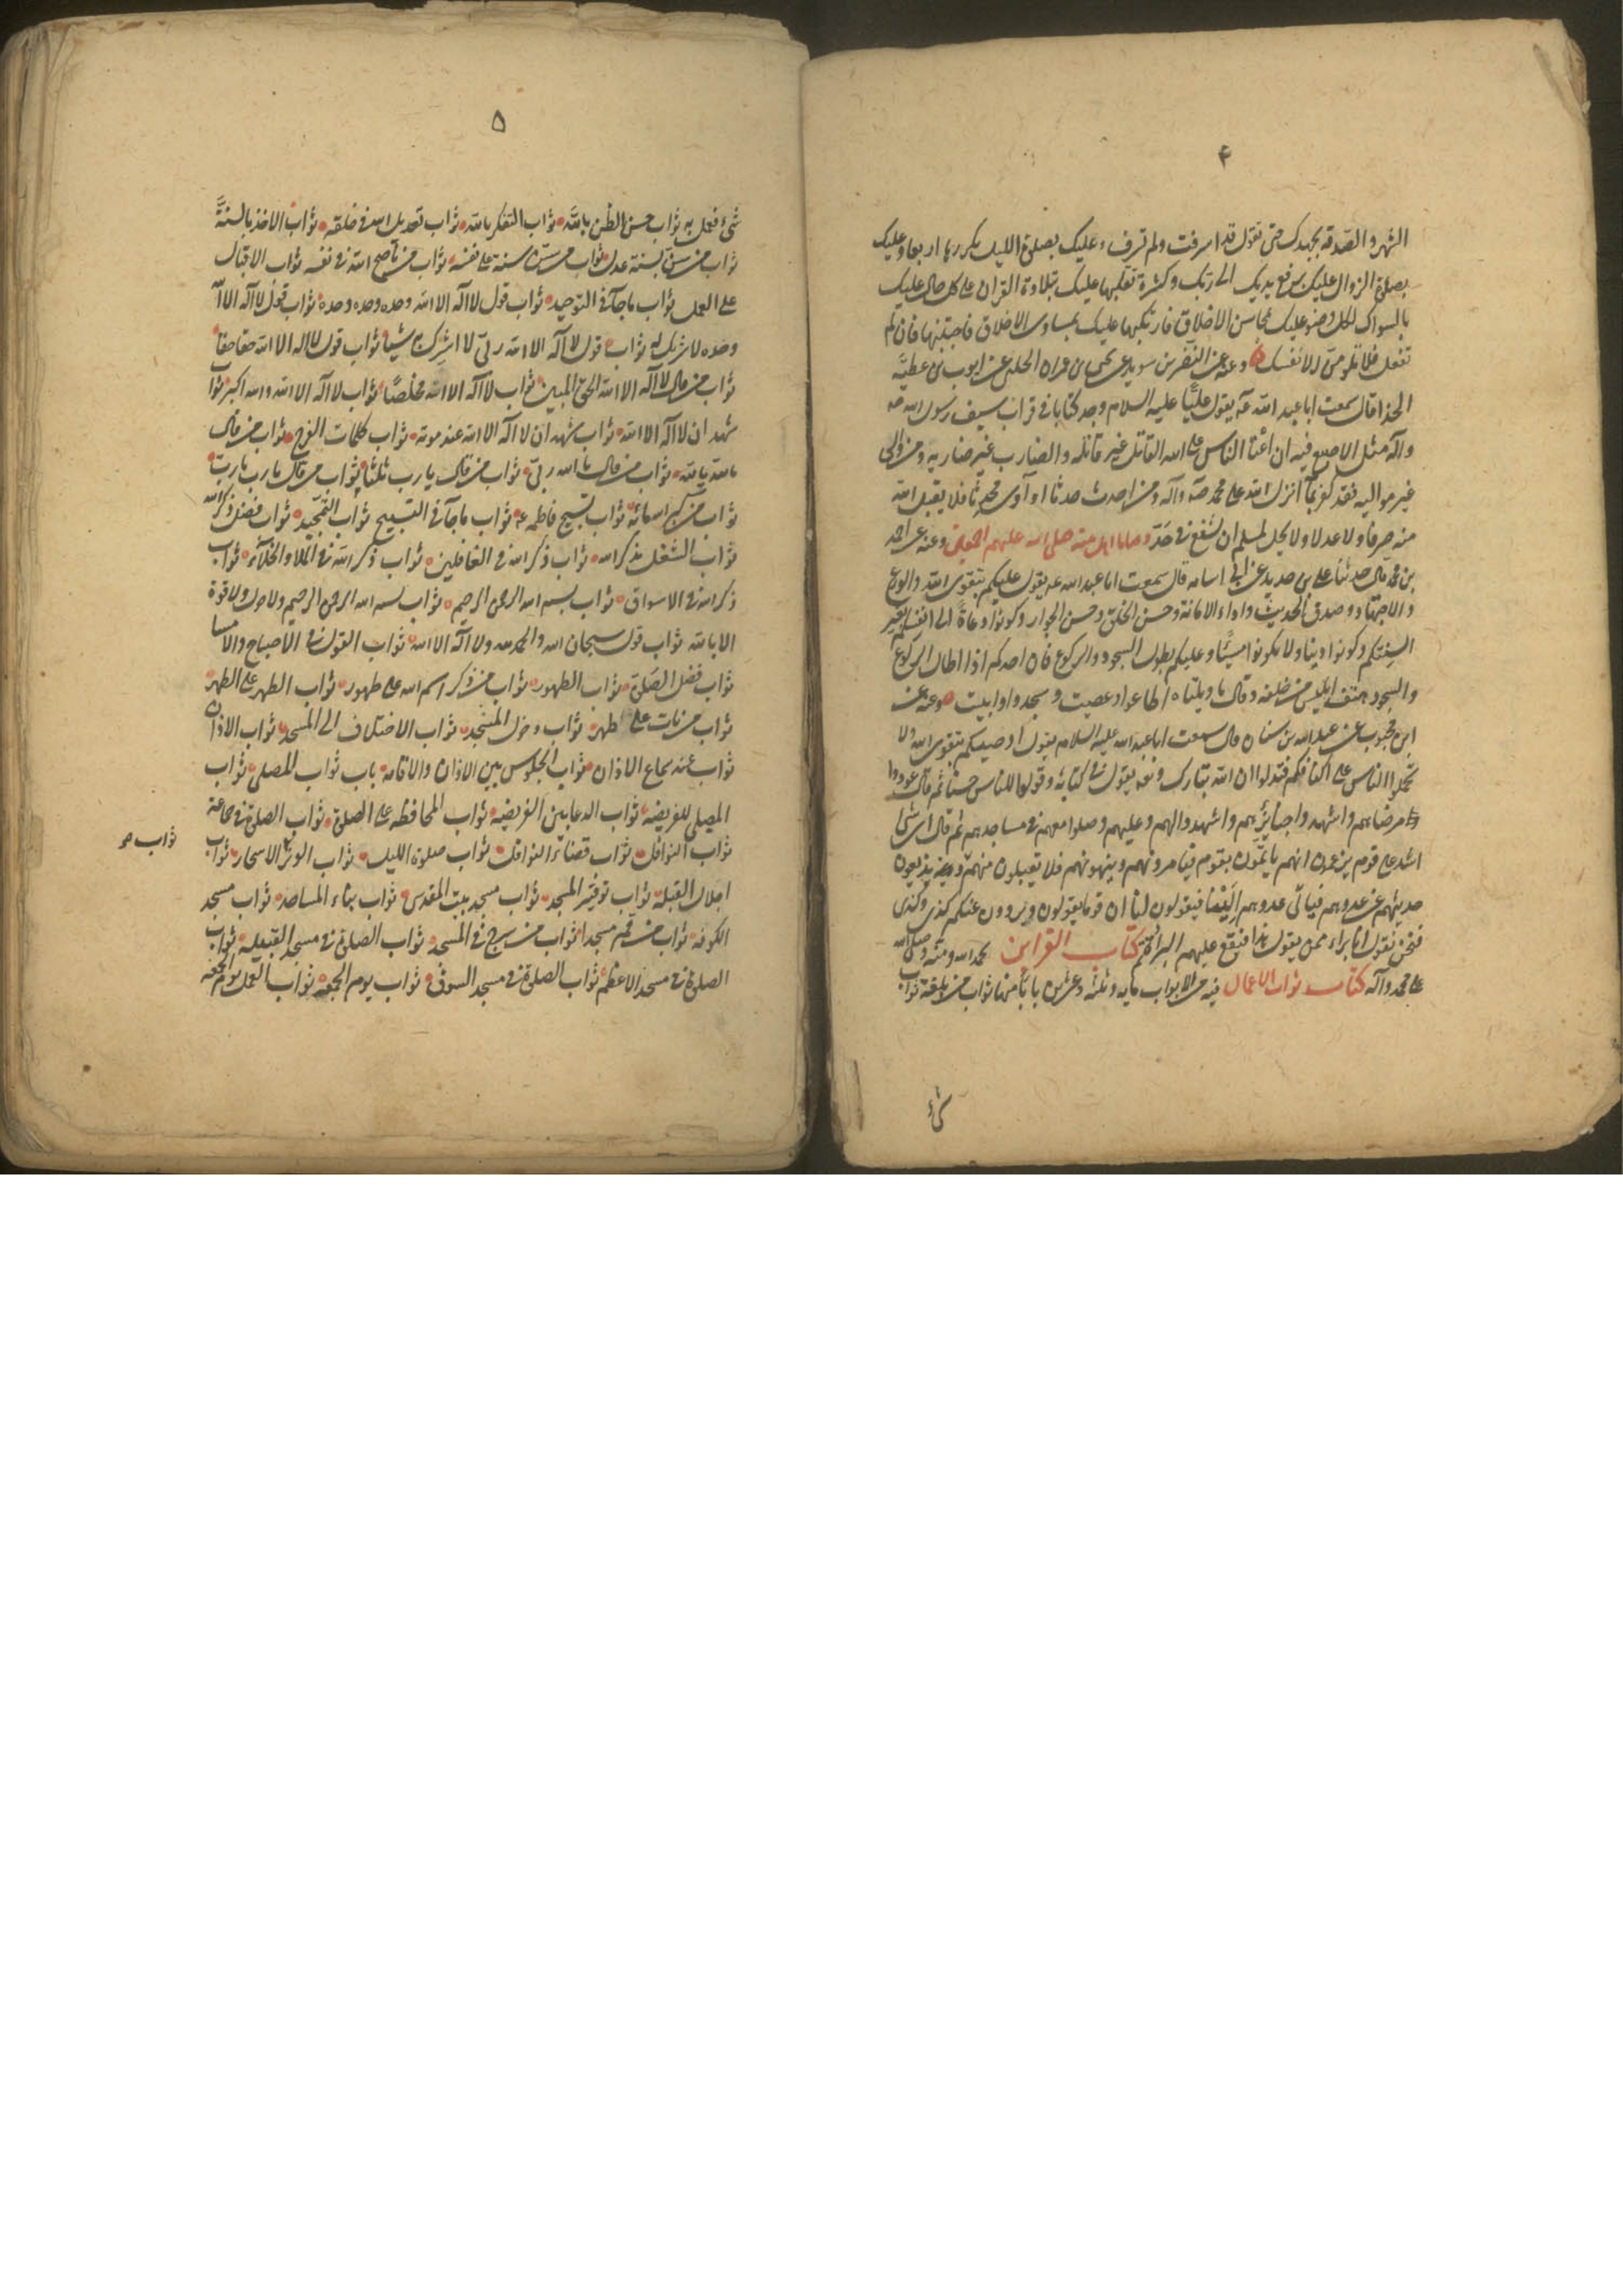 ۴
الشهر والصدقة بجهدك حتى تقول قد اسرفت ولم تسرف وعليك بصلوة الليل يكررها اربعا وعليك
بصلوة الزوال وعليك برفع يديك الى ربك وكثرة تقلبها عليك بتلاوة القران على كل حال عليك
بالسواك لكل وضوء عليك بمحاسن الاخلاق فارتكبها عليك بمساوى الاخلاق فاجتنبها فان لم
تفعل فلا تلومن الا نفسك وعنه عن النضر بن سويد عن يحيى بن عمران الحلبى عن ايوب بن عطية
الحذا قال سمعت ابا عبد الله ع يقول ان عليا عليه السلام وجد كتابا فى قراب سيف رسول الله ص
واله مثل الاصبع فيه ان اعتا الناس على الله القاتل غير قاتله والضارب غير ضاربه ومن والى
غير مواليه فقد كفر بما انزل الله على محمد ص واله ومن احدث حدثا او آوى محدثا فلا يقبل الله
منه صرفا ولا عدلا ولا يحل لمسلم ان يشفع فى حد وصايا اهل بيته صلى الله عليهم اجمعين وعنه عن احمد
بن محمد قال حدثنا على بن حديد عن ابى اسامه قال سمعت ابا عبد الله ع يقول عليكم بتقوى الله والورع
والاجتهاد وصدق الحديث واداء الامانة وحسن الخلق وحسن الجوار وكونوا دعاة الى انفسكم بغير
السنتكم وكونوا زينا ولا تكونوا شينا وعليكم بطول السجود والركوع فان احدكم اذا اطال الركوع
والسجود هتف ابليس من خلفه وقال يا ويلتاه اطاعوا وعصيت وسجدوا وابيت وعنه عن
ابن محبوب عن عبد الله بن سنان قال سمعت ابا عبد الله عليه السلام يقول اوصيكم بتقوى الله ولا
تحملوا الناس على اكتافكم فتذلوا ان الله تبارك وتع يقول فى كتابه وقولوا للناس حسنا ثم قال عودوا
مرضاهم واشهدوا جنائزهم واشهدوا لهم وعليهم وصلوا معهم فى مساجدهم ثم قال اى شئ
اشد على قوم يزعمون انهم ياتمون بقوم فيامرونهم وينهونهم فلا يقبلون منهم ويذيعون
حديثهم عند عدوهم فياتى عدوهم الينا فيقولون لنا ان قوما يقولون ويروون عنكم كذى وكذى
فنحن نقول انا براء ممن يقول هذا فيقع عليهم البراءة تم كتاب القراين بحمد الله ومنه وصلى الله
على محمد وآله كتاب ثواب الاعمال فيه من الابواب مايه وثلثه وعشرين بابا منها ثواب من بلغه ثواب
شئ
۵
شئ فعمل به ثواب حسن الظن بالله ثواب التفكر بالله ثواب تعديل الله فى خلقه ثواب الاخذ بالسنة
ثواب من سن سنة عدل ثواب من سن سنة على نفسه ثواب من ناصح الله فى نفسه ثواب الاقبال
على العمل ثواب ما جآء فى التوحيد ثواب قول لا اله الا الله وحده وحده وحده ثواب قول لا اله الا الله
وحده لا شريك له ثواب قول لا اله الا الله ربى لا اشرك به شيئا ثواب قول لا اله الا الله حقا حقا
ثواب من قال لا اله الا الله الحق المبين ثواب لا اله الا الله مخلصا ثواب لا اله الا الله والله اكبر ثواب
شهد ان لا اله الا الله ثواب شهد ان لا اله الا الله عند موته ثواب كلمات الفرج ثواب من قال
يا الله يا الله ثواب من قال يا الله ربى ثواب من قال يا رب ثلثا ثواب من قال يا رب يا رب
ثواب من كبر الله مائة ثواب تسبيح فاطمه ع ثواب ما جآء فى التسبيح ثواب التمجيد ثواب فضل ذكر الله
ثواب الشغل بذكر الله ثواب ذكر الله فى الغافلين ثواب ذكر الله فى الملا والخلاء ثواب
ذكر الله فى الاسواق ثواب بسم الله الرحمن الرحيم ثواب بسم الله الرحمن الرحيم ولا حول ولا قوة
الا بالله ثواب قول سبحان الله والحمد لله ولا اله الا الله ثواب القول فى الاصباح والامسا
ثواب فضل الصلوة ثواب الطهور ثواب من ذكر اسم الله على طهور ثواب الطهر على الطهر
ثواب من بات على طهر ثواب دخول المسجد ثواب الاختلاف الى المسجد ثواب الاذان
ثواب عند سماع الاذان ثواب الجلوس بين الاذان والاقامه باب ثواب المصلى ثواب
المصلى للفريضه ثواب الدعا بين الفريضه ثواب المحافظه على الصلوة ثواب الصلوة فى جماعة
ثواب النوافل ثواب قضاء النوافل ثواب صلوة الليل ثواب الوتر بالاسحار ثواب
ثواب
اجلال القبله ثواب توقير المسجد ثواب مسجد بيت المقدس ثواب بناء المساجد ثواب مسجد
الكوفه ثواب من قم مسجدا ثواب من سرج فى المسجد ثواب الصلوة فى مسجد القبيله ثواب
الصلوة فى مسجد الاعظم ثواب الصلوة فى مسجد السوق ثواب يوم الجمعة ثواب العمل يوم الجمعة